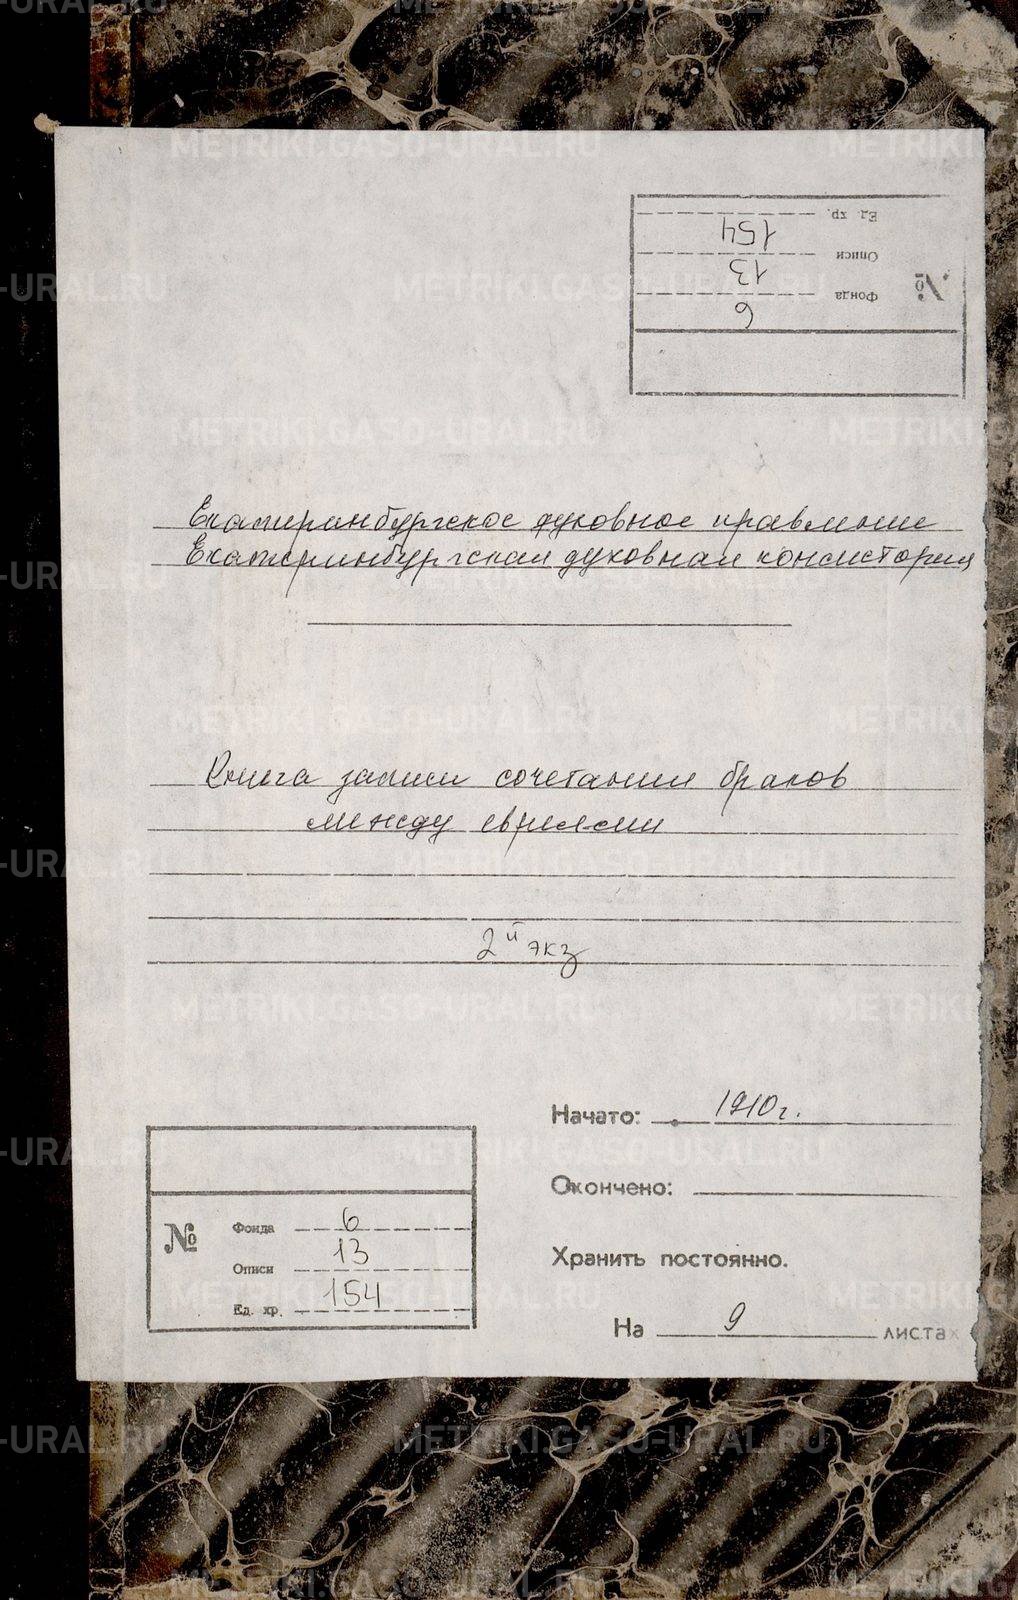 №
Фонда 6
Описи 13
Ед. хр. 154
Екатеринбургское духовное правление
Екатеринбургская духовная консистория
Книга записи сочетании браков
между евреями
2й экз
Начато: 1910 г.
Окончено:
Хранить постоянно.
На 9 листах
№
Фонда 6
Описи 13
Ед. хр. 154
METRIKI.GASO-URAL.RU